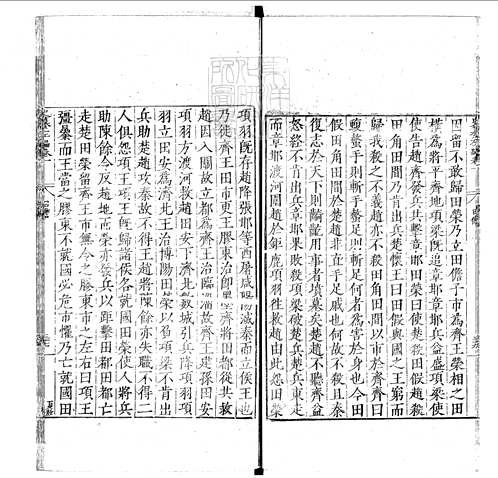 因留不敢歸田榮乃立田儋子市爲齊王榮相之田
橫爲將平齊地項梁旣追章邯章邯兵益盛項梁使
使告趙齊發兵共擊章邯田榮曰使楚殺田假趙殺
田角田閒乃肯出兵楚懷王曰田假與國之王窮而
歸我殺之不義趙亦不殺田角田閒以市於齊齊曰
蝮螫手則斬手螫足則斬足何者爲害於身也今田
假田角田閒於楚趙非直手足戚也何故不殺且秦
復志於天下則齮齕用事者墳墓矣楚趙不聽齊益
怒終不肯出兵章邯果敗殺項梁破楚兵楚兵東走
而章邯渡河圍趙於鉅鹿項羽往救趙由此怨田榮
項羽旣存趙降章邯等西屠咸陽滅秦而立侯王也
乃徙齊王田市更王膠東治卽墨齊將田都從共救
趙因入關故立都爲齊王治臨淄故齊王建孫田安
項羽方渡河救趙田安下濟北數城引兵降項羽項
羽立田安爲濟北王治博陽田榮以負項梁不肯出
兵助楚趙攻秦故不得王趙將陳餘亦失職不得二
人俱怨項王項王旣歸諸侯各就國田榮使人將兵
助陳餘令反趙地而榮亦發兵以距擊田都田都亡
走楚田榮留齊王市無令之膠東市之左右曰項王
彊暴而王當之膠東不就國必危市懼乃亡就國田